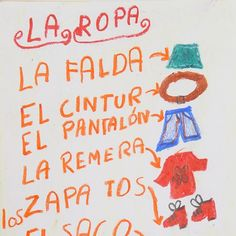 LA ROPA
LA FALDA
EL CINTUR
EL PANTALÓN
LA REMERA
los ZAPATOS
EL SACO